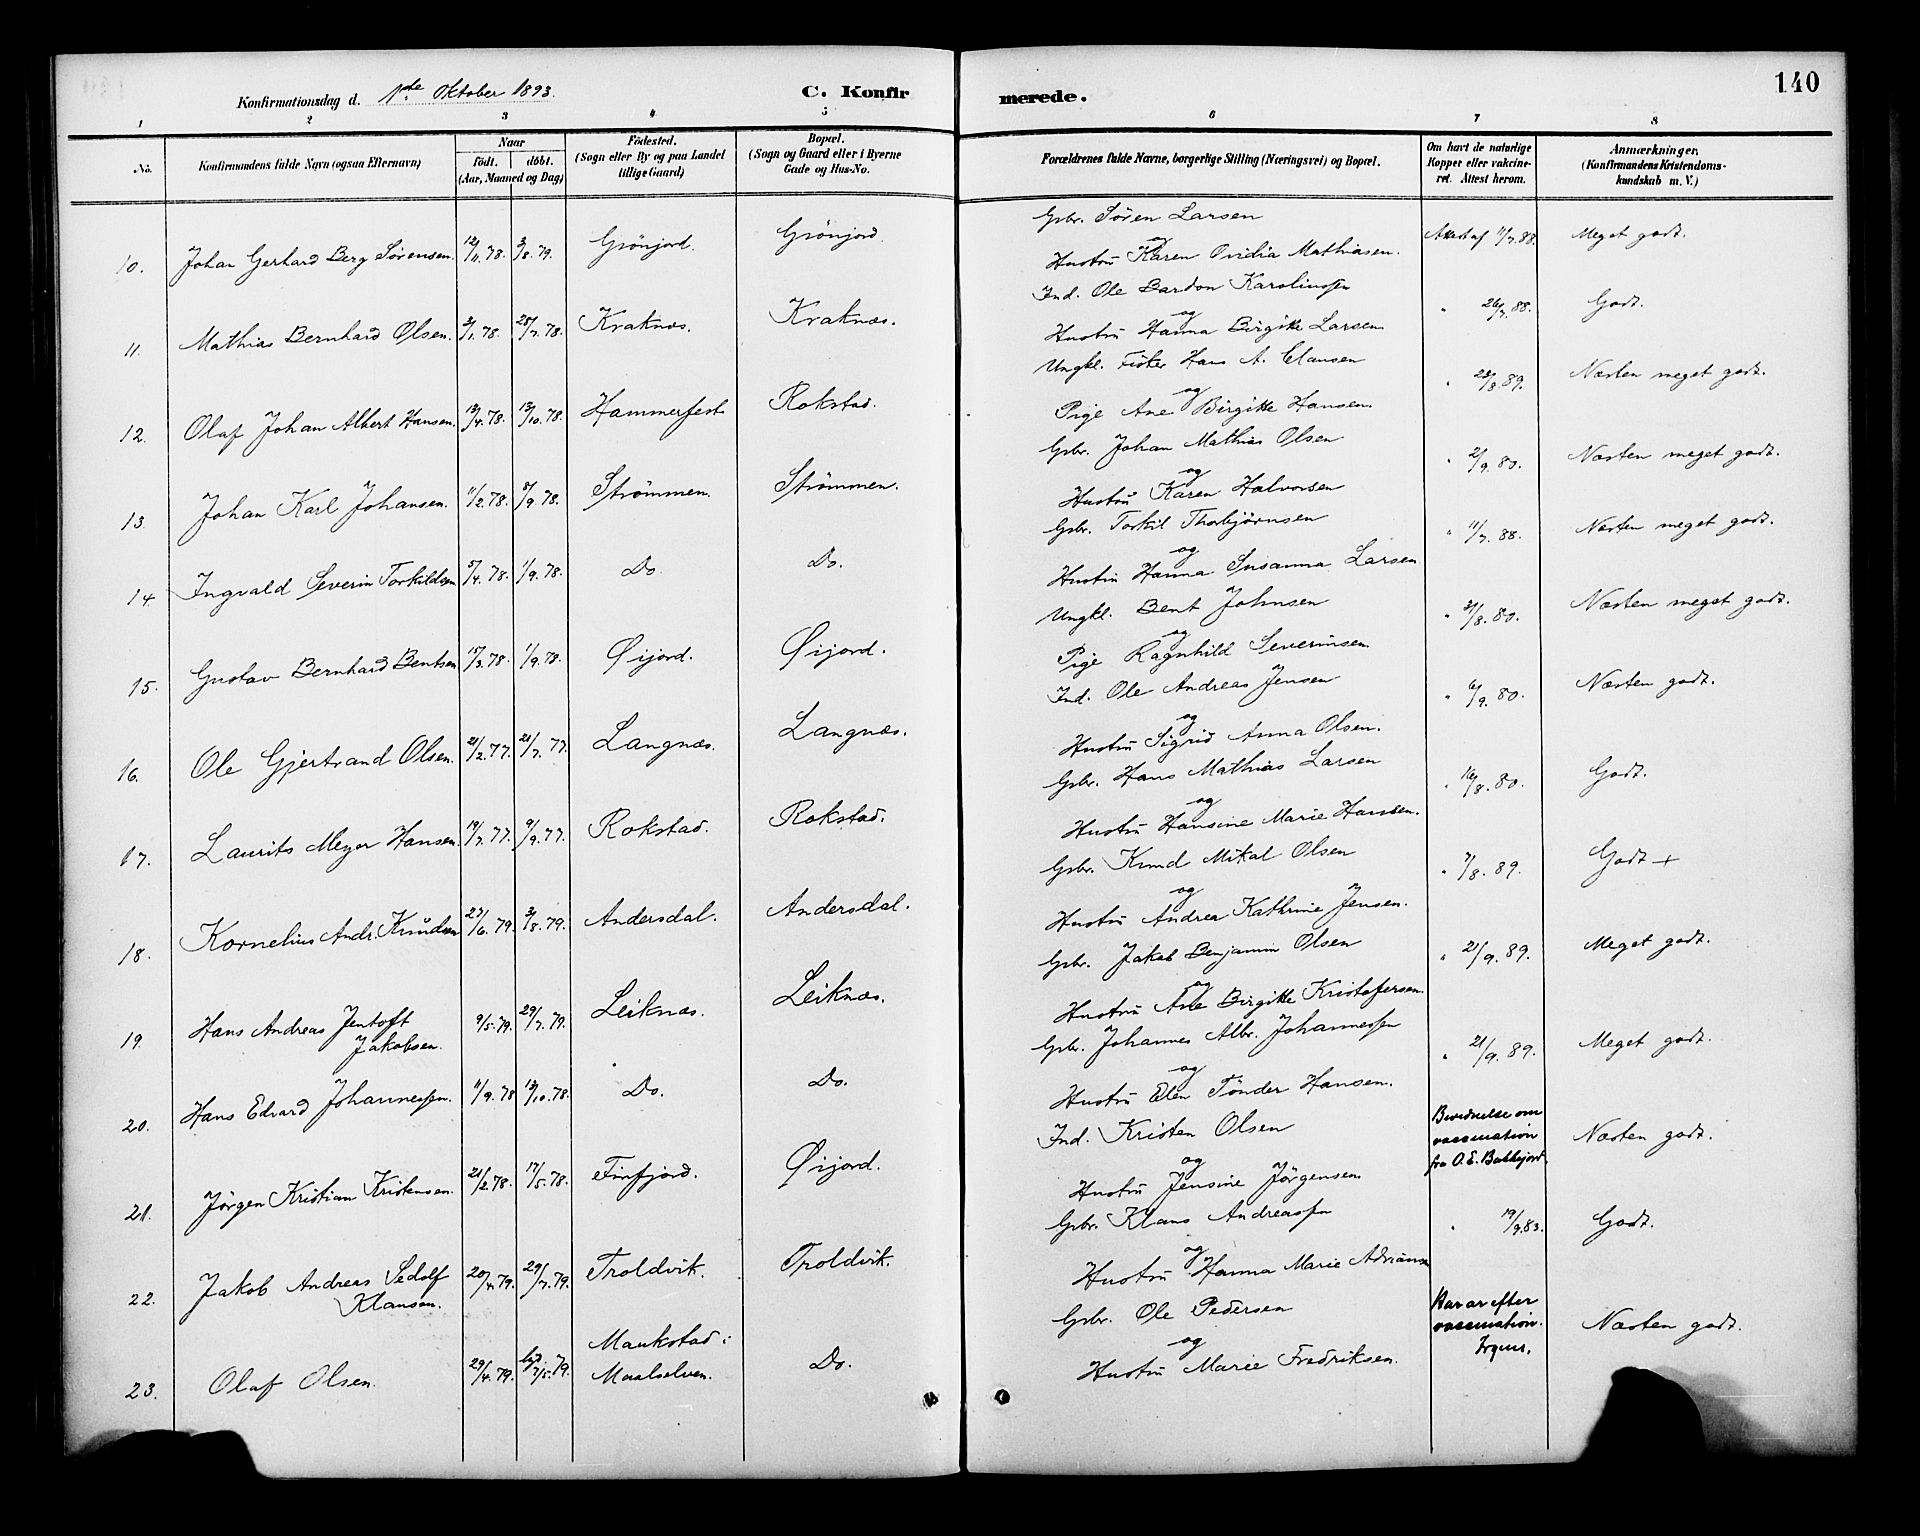 Konfirmationsdag d. 1ste Oktober 1893.
C. Konfirmerede.
140
1 2 3 4 5 6 7 8
No.
Konfirmandens fulde Navn (ogsaa Efternavn)
Naar
födt. döbt.
(Aar, Maaned og Dag)
Födested.
(Sogn eller By og paa Landet
tillige Gaard)
Bopæl.
(Sogn og Gaard eller i Byerne
Gade og Hus-No.
Forældrenes fulde Navne, borgerlige Stilling (Næringsvei) og Bopæl.
Om havt de naturlige
Kopper eller vakcine-
ret. Attest herom.
Anmærkninger.
(Konfirmandens Kristendoms-
kundskab m. V.)
10. Johan Gerhard Berg Sørensen. 12/11.78. 3/8.79. Grönjord. Grönjord. Gbr. Sören Larsen
og
Hustru Karen Ovidia Mathiasen. Attest af 11/7.88. Meget godt.
11. Mathias Bernhard Olsen. 3/1.78. 28/7.78. Kraknæs. Kraknæs. Ind. Ole Bardon Karolinssen
og
Hustru Hanna Birgitte Larsen " 26/7.88. Godt.
12. Olaf Johan Albert Hansen. 13/4.78. 13/10.78. Hammerfest Rokstad. Ungkl. Fisker Hans A. Clausen
og
Pige Ane Birgitte Hansen. " 23/8.89. Næsten meget godt.
13. Johan Karl Johansen. 11/2.78. 8/9.78. Strömmen. Strömmen. Gbr. Johan Mathias Olsen
og
Hustru Karen Halvorsen " 2/9.80. Næsten meget godt.
14. Ingvald Severin Torkildsen 5/4.78. 1/9.78. Do. Do. Gbr. Torkil Thorbjørnsen
og
Hustru Hanna Susanna Larsen " 11/7.88. Næsten meget godt.
15. Gustav Bernhard Bentsen 15/3.78. 1/9.78. Øijord. Øijord. Ungkl. Bent Johnsen
og
Pige Ragnhild Severinsen " 31/8.80. Næsten meget godt.
16. Ole Gjertrand Olsen. 21/2.77. 21/7.77. Langnæs. Langnæs. Ind. Ole Andreas Jensen
og
Hustru Sigrid Anna Olsen. " 6/9.80. Næsten godt.
17. Laurits Meyer Hansen. 19/7.77. 9/9.77. Rokstad. Rokstad. Gbr. Hans Mathias Larsen
og
Hustru Hansine Marie Hansen. " 16/8.80. Godt.
18. Kornelius Andr. Knudsen 27/6.79. 3/8.79. Andersdal. Andersdal. Gbr. Knud Mikal Olsen
og
Hustru Andrea Kathrine Jensen. " 7/8.89. Godt +
19. Hans Andreas Jentoft
Jakobsen. 9/5.79. 29/7.79. Leiknæs. Leiknæs. Gbr. Jakob Benjamin Olsen
og
Hustru Ane Birgitte Kristofersen. " 21/9.89. Meget godt.
20. Hans Edvard Johannessen. 11/9.78 13/10.78. Do. Do. Gbr. Johannes Albr. Johannessen
og
Hustru Elen Tönder Hansen. " 21/9.89. Meget godt.
21. Jörgen Kristian Kristensen. 21/2.78. 17/5.78. Finfjord. Øijord. Ind. Kristen Olsen
og
Hustru Jensine Jörgensen Bevidnelse om
vaccination
fra O.E. Bakkejord. Næsten godt.
22. Jakob Andreas Sedolf
Klausen. 20/4.79. 29/7.79. Troldvik. Troldvik. Gbr. Klaus Andreassen
og
Hustru Hanna Marie Adriansen " 19/9.83. Godt.
23. Olaf Olsen. 29/4.79. /5.79. Maukstad i
Maalselven. Do. Gbr. Ole Pedersen
og
Hustru Marie Fredriksen. Har ar efter
vaccination. Næsten godt.